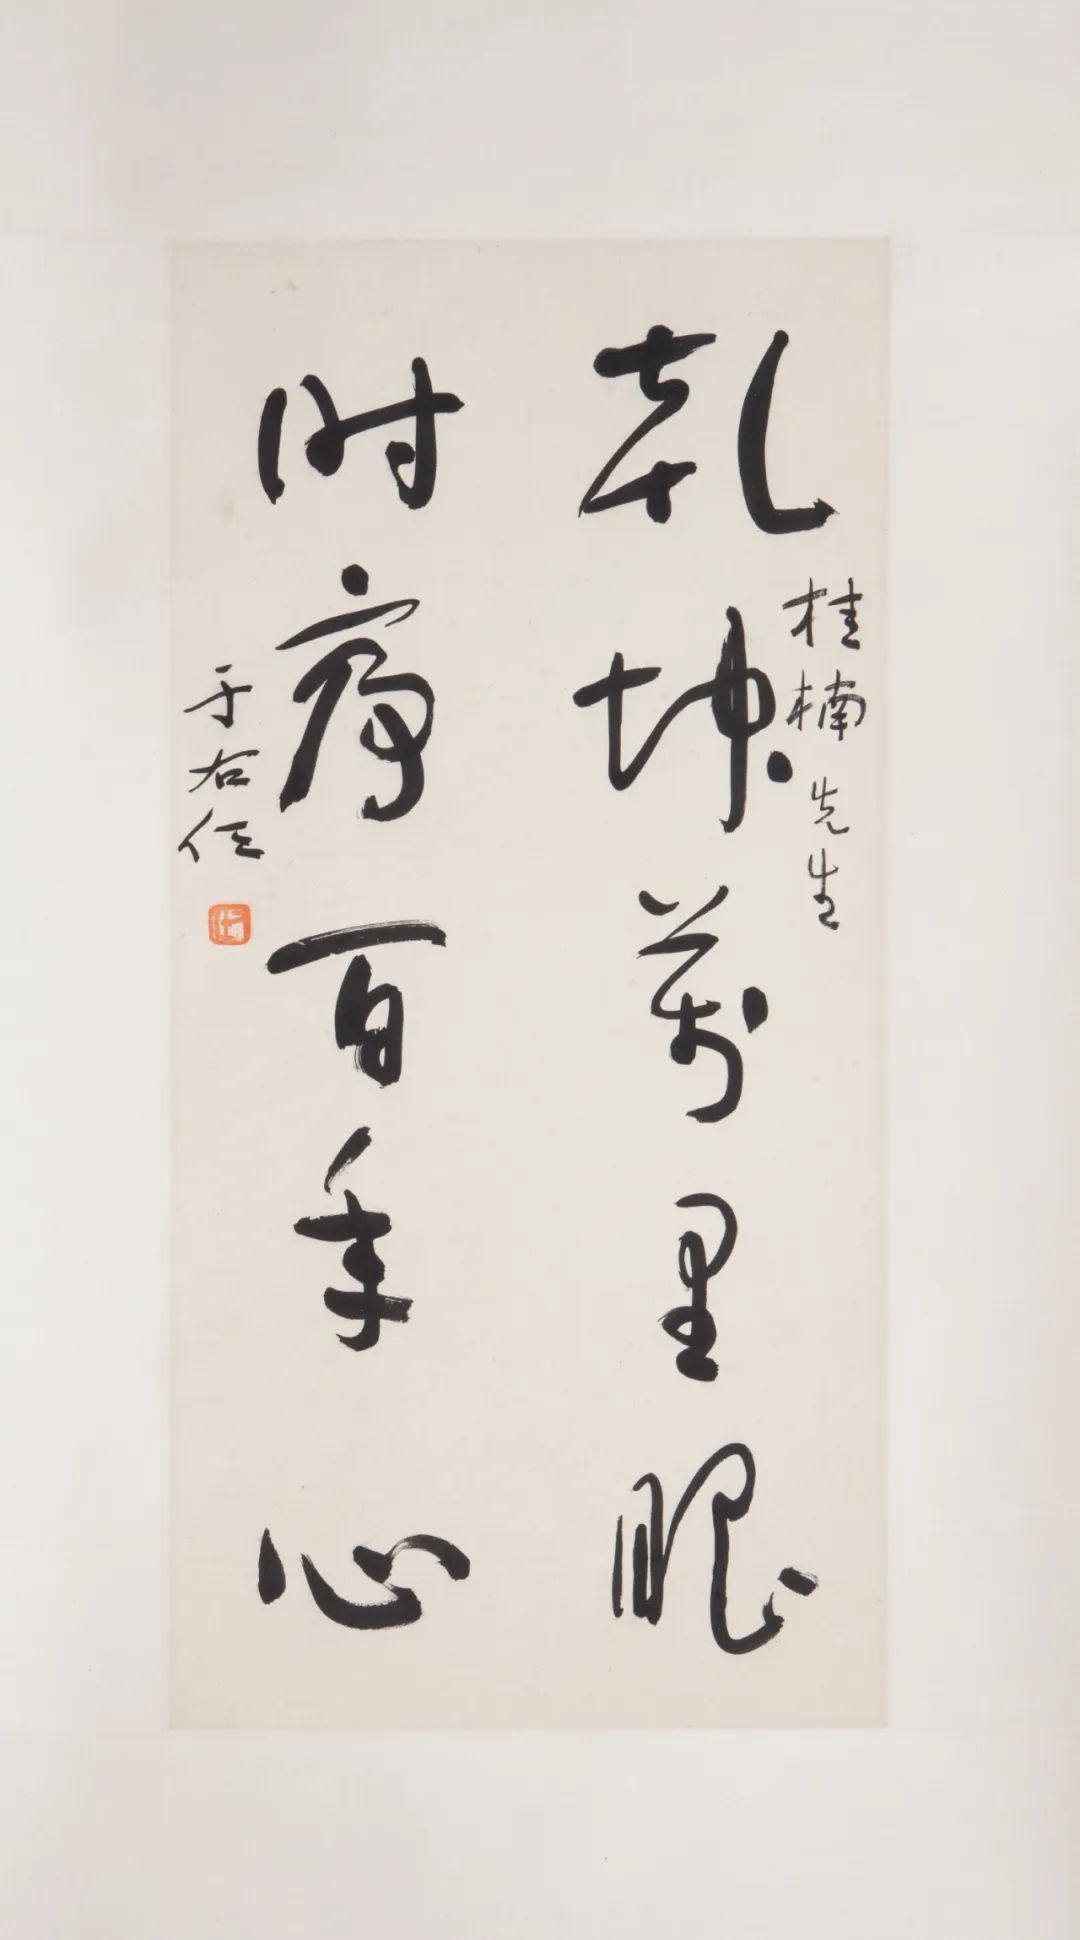 乾坤萬里眼
桂楠先生
时序百年心
于右任